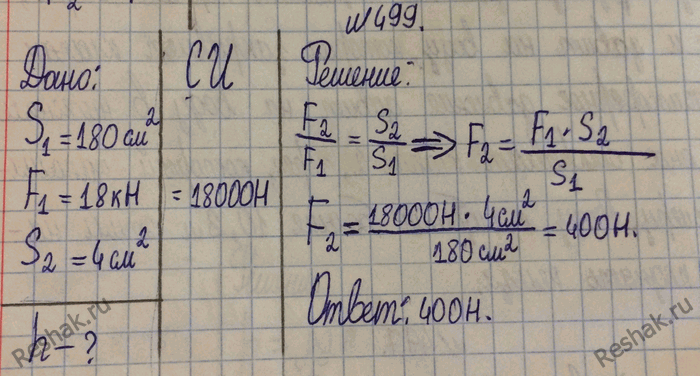 №499.
Дано:
S₁ = 180 см²
F₁ = 18 кН
S₂ = 4 см²
h - ?
СИ
= 18000Н
Решение:
F₂/F₁ = S₂/S₁ ⇒ F₂ = F₁ · S₂/S₁
F₂ = 18000Н · 4 см²/180 см² = 400Н.
Ответ: 400Н.
Reshak.ru
Reshak.ru